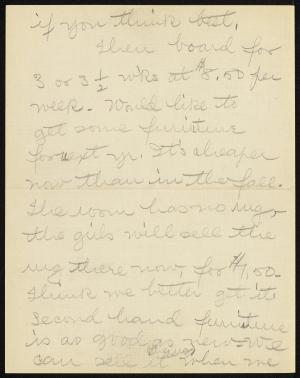 if you think best.
Then board for
3 or 3 1/2 wks at $8.50 per
week. Would like to
get some furniture
for next yr. It's cheaper
now than in the fall.
The room has no rug,
the girls will sell the
rug there now, for $1.50-
Think we better get it.
Second hand furniture
is as good as new. We
can sell it always when we